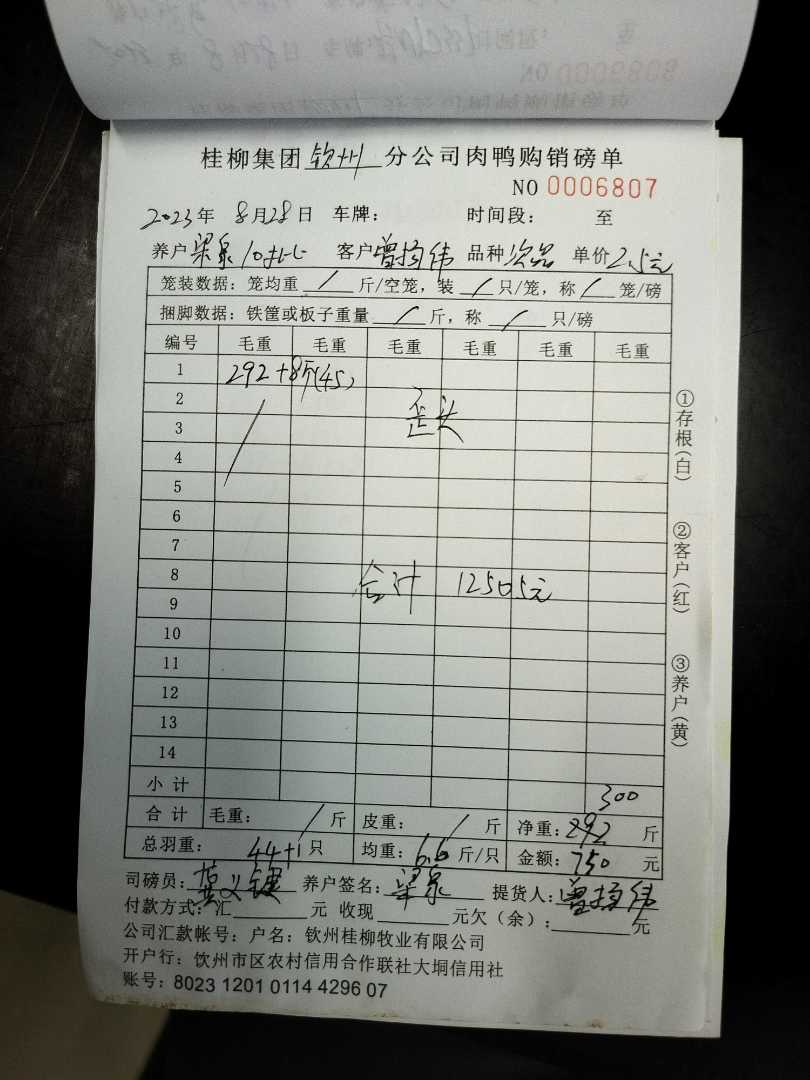 桂柳集团 钦州 分公司肉鸭购销磅单
NO 0006807
2023年 8月28日 车牌： 时间段： 至
养户 梁泉 客户 曾扬伟 品种 次品 单价 2.5元
笼装数据：笼均重 / 斤/空笼，装 / 只/笼，称 / 笼/磅
捆脚数据：铁筐或板子重量 / 斤，称 / 只/磅
编号 毛重 毛重 毛重 毛重 毛重 毛重
1 292+8斤(45)
2 歪头
3
4
5
6
7
8 合计 12505元
9
10
11
12
13
14
小计 300
合计 毛重： / 斤 皮重： / 斤 净重：292 斤
总羽重： 44+1 只 均重：6.6 斤/只 金额：750 元
司磅员： 养户签名：梁泉 提货人：曾扬伟
付款方式：汇 元 收现 元欠（余）： 元
公司汇款帐号：户名：钦州桂柳牧业有限公司
开户行：钦州市区农村信用合作联社大垌信用社
账号：8023 1201 0114 4296 07
①存根（白）
②客户（红）
③养户（黄）